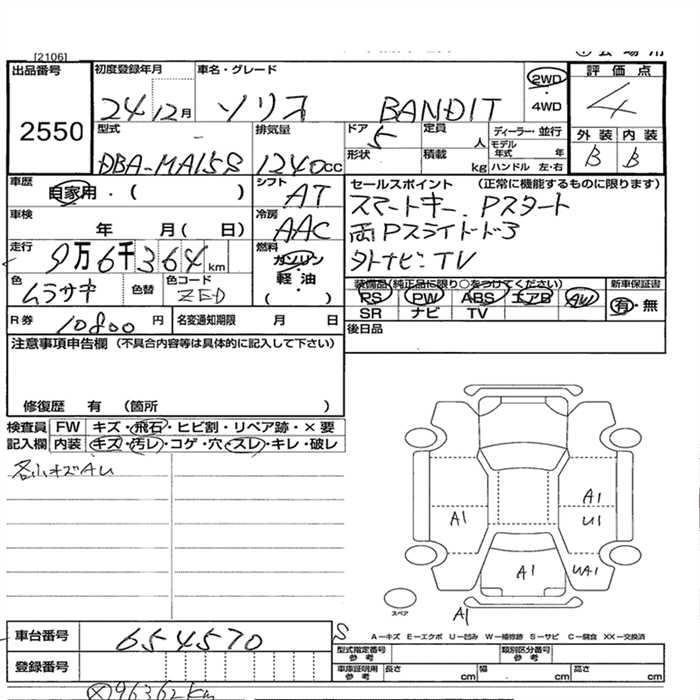 [2106]
出品番号 2550
初度登録年月 24 12月
車名・グレード ソリオ BANDIT
2WD・4WD
評価点 4
型式 DBA-MA15S
排気量 1240cc
ドア 5
形状
定員 人
積載 kg
ディーラー・並行
モデル年式 年
ハンドル 左・右
外装 B 内装 B
車歴 自家用・( )
シフト AT
車検 年 月( 日)
冷房 AAC
走行 9万6千364km
燃料 ガソリン・軽油・( )
色 ムラサキ 色替 色コード ZED
R券 10800円 名変通知期限 月 日
セールスポイント (正常に機能するものに限ります)
スマートキー. Pスタート
両Pスライドドア
外ナビ・TV
装備品(純正品に限り○をつけてください)
PS PW ABS エアB AW
SR ナビ TV
新車保証書 有・無
後日品
注意事項申告欄 (不具合内容等は具体的に記入して下さい)
修復歴 有 (箇所 )
検査員 FW キズ・飛石・ヒビ割・リペア跡・×要
記入欄 内装 キズ・汚レ・コゲ・穴・スレ・キレ・破レ
各小キズAU
A1
A1
U1
A1
UA1
A1
スペア
A−キズ E−エクボ U−凹み W−補修跡 S−サビ C−腐食 XX−交換済
車台番号 654570 S
登録番号
型式指定番号 参考
類別区分番号 参考
車庫証明用 参考 長さ cm 幅 cm 高さ cm
96362km